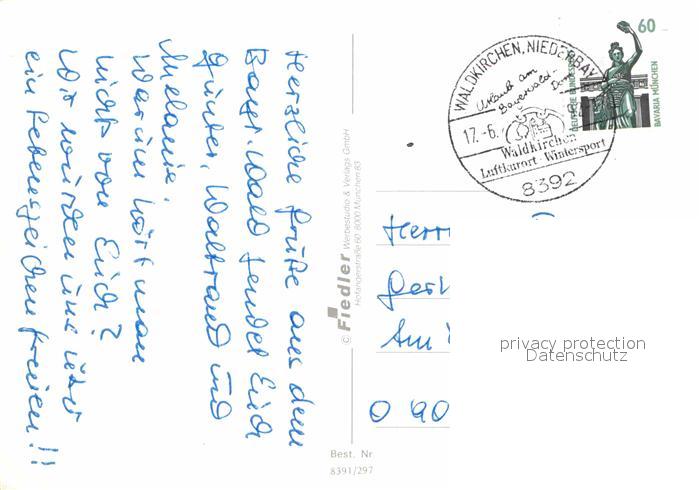 Herzliche Grüße aus dem
Bayr. Wald sendet Euch
Günter, Waltraud und
Melanie.
Warum hört man
nicht von Euch?
Wir würden uns über
ein Lebenszeichen freuen!!
© Fiedler Werbestudio & Verlags GmbH
Hofangerstraße 60 · 8000 München 83
Best. Nr
8391/297
WALDKIRCHEN, NIEDERBAY
Urlaub am
Bayerwald-
17.-6.
Waldkirchen
Luftkurort · Wintersport
8392
60
DEUTSCHE BUNDES
BAVARIA MÜNCHEN
Herrn
Am
O 90
privacy protection
Datenschutz